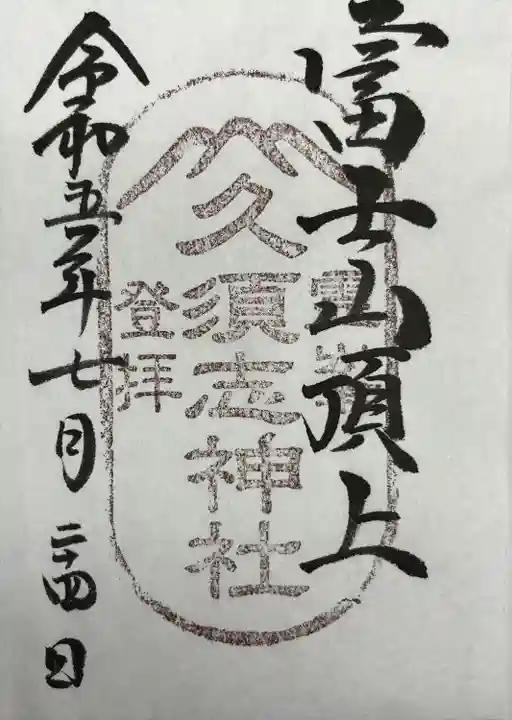 富士山頂上
久須志神社
登拝
令和五年七月二十四日